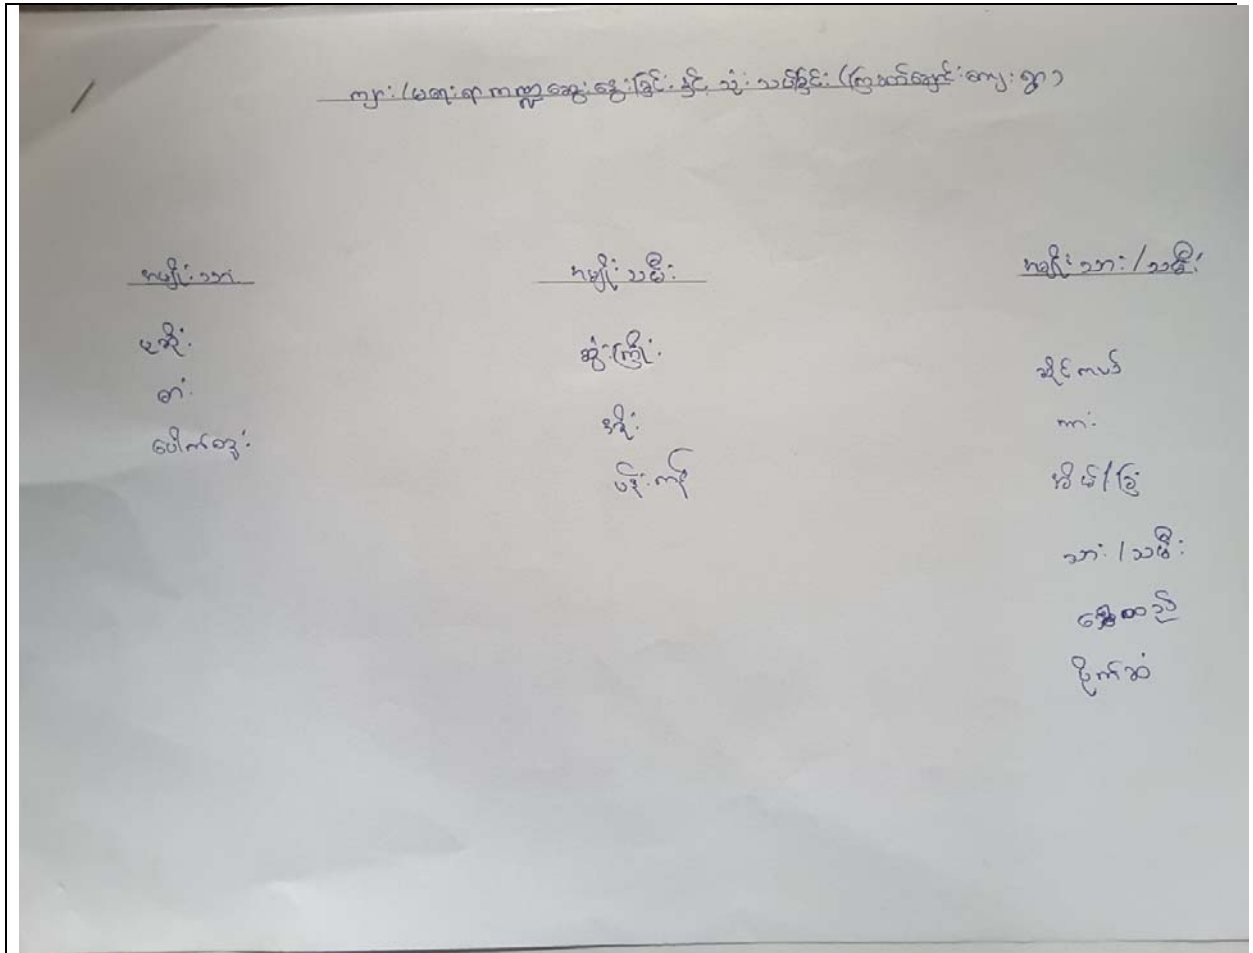 ကျား/မရေးရာကဏ္ဍဆွေးနွေးခြင်းနှင့် သုံးသပ်ခြင်း (ကြခတ်ချောင်းကျေးရွာ)
အမျိုးသား
ပုဆိုး
ဓား
ပေါက်တူး
အမျိုးသမီး
ဆွဲကြိုး
ဒအိုး
ပန်းကန်
အမျိုးသား/သမီး
ဆိုင်ကယ်
ကား
အိမ်/ခြံ
သား/သမီး
ရွှေထည်
ပိုက်ဆံ